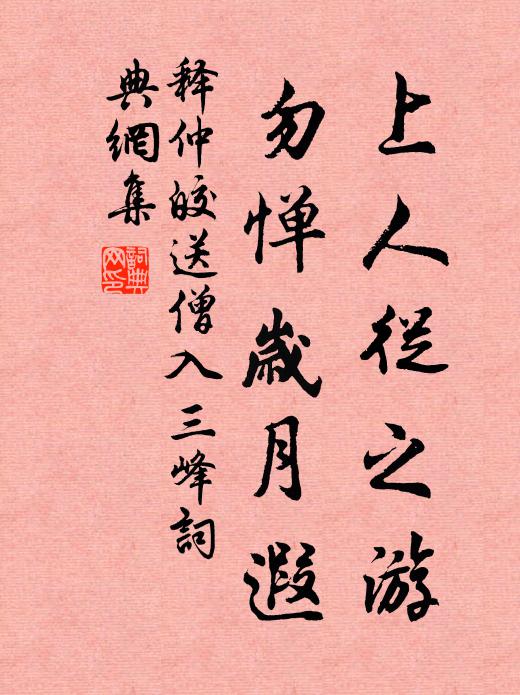 上人從之游
勿惮歲月遐
释仲皎送僧入三峰詞
典網集
詞典網印